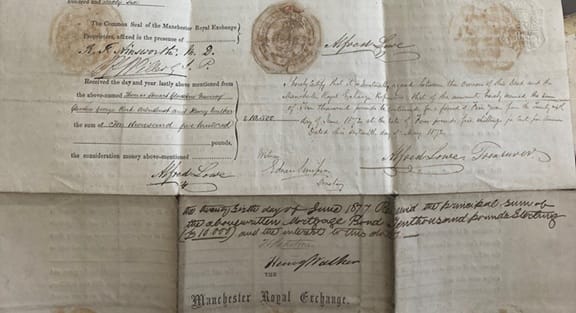 hundred and sixty six
The Common Seal of the Manchester Royal Exchange
Proprietors, affixed in the presence of
R. F. Ainsworth M. D.
J. P.
Received the day and year lastly above mentioned from
the above-named Thomas
George and Henry Walker
the sum of Ten thousand five hundred
pounds,
the consideration money above-mentioned
Alfred Lowe
£10,500
Alfred Lowe
I hereby Certify that it is mutually agreed between the Owners of this Bond and the
Manchester Royal Exchange Proprietors that of the amount hereby secured the sum
of Ten thousand pounds is to continue for a period of Five years from the Twenty sixth
day of June 1872 at the rate of Four pounds five shillings per cent per annum
Dated this sixteenth day of May 1872.
Witness
Secretary
Alfred Lowe Treasurer
the twenty sixth day of June 1877 Received the principal sum of
the above written Mortgage Bond Ten thousand pounds Sterling
(£10,000) and the interest to this date
Henry Walker
THE
Manchester Royal Exchange.